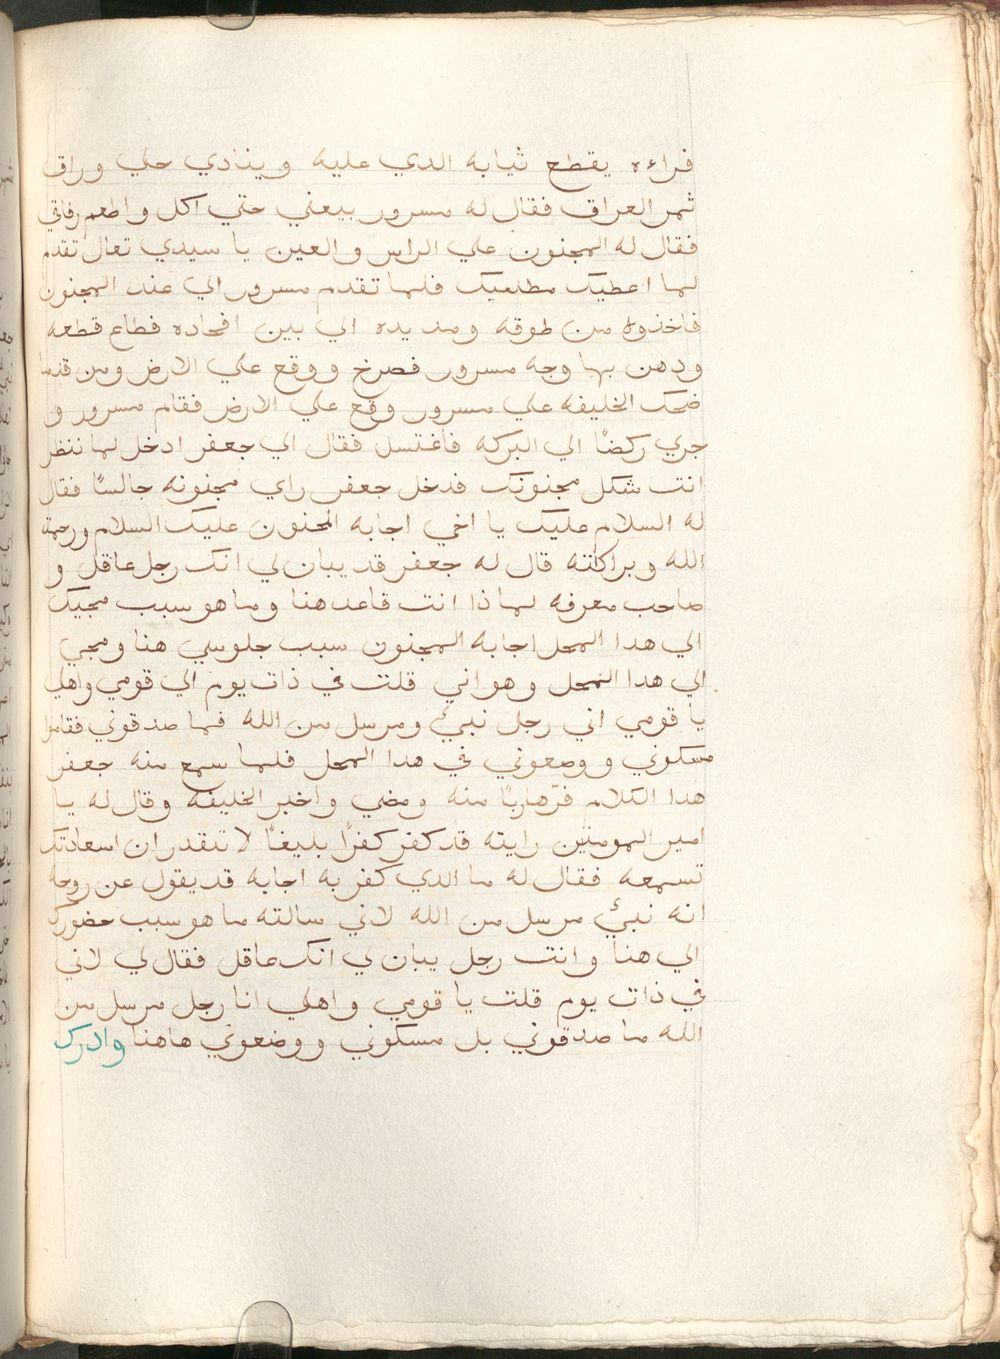 فراءه يقطع ثيابه الدي عليه وينادي حلي وراق
ثمر العراق فقال له مسرور بيعني حتي اكل واطعم رفاقي
فقال له المجنون علي الراس والعين يا سيدي تعال تقدم
لما اعطيك مطلعبك فلما تقدم مسرور الي عند المجنون
فاخذوه من طوقه ومد يده الي بين افخاده فطاع قطعه
ودهن بها وجه مسرور فصرخ ووقع علي الارض ومن قدما
ضحك الخليفه علي مسرور وقع علي الارض فقام مسرور و
جري ركضًا الي البركه فاغتسل فقال الي جعفر ادخل لما ننظر
انت شكل مجنونك فدخل جعفر راي مجنونه جالسًا فقال
له السلام عليك يا اخي اجابه المجنون عليك السلام ورحمة
الله وبراكته قال له جعفر قد يبان لي انك رجل عاقل و
صاحب معرفه لماذا انت قاعد هنا وما هو سبب مجيك
الي هدا المحل اجابه المجنون سبب جلوسي هنا ومجي
الي هدا المحل وهو اني قلت في ذات يوم الي قومي واهلي
يا قومي اني رجل نبيٌ ومرسل من الله فما صدقوني فقاموا
مسكوني ووضعوني في هدا المحل فلما سمع منه جعفر
هدا الكلام فرّ هاربًا منه ومضي واخبر الخليفه وقال له يا
امير المومنين رايته قد كفر كفرًا بليغًا لا تنقدر ان اسعادتك
تسمعه فقال له ما الدي كفر به اجابه قد يقول عن روحه
انه نبيٌ مرسل من الله لاني سالته ما هو سبب حضورك
الي هنا وانت رجل يبان لي انك عاقل فقال لي لاني
في ذات يوم قلت يا قومي واهلي انا رجل مرسل من
الله ما صدقوني بل مسكوني ووضعوني هاهنا وادرك